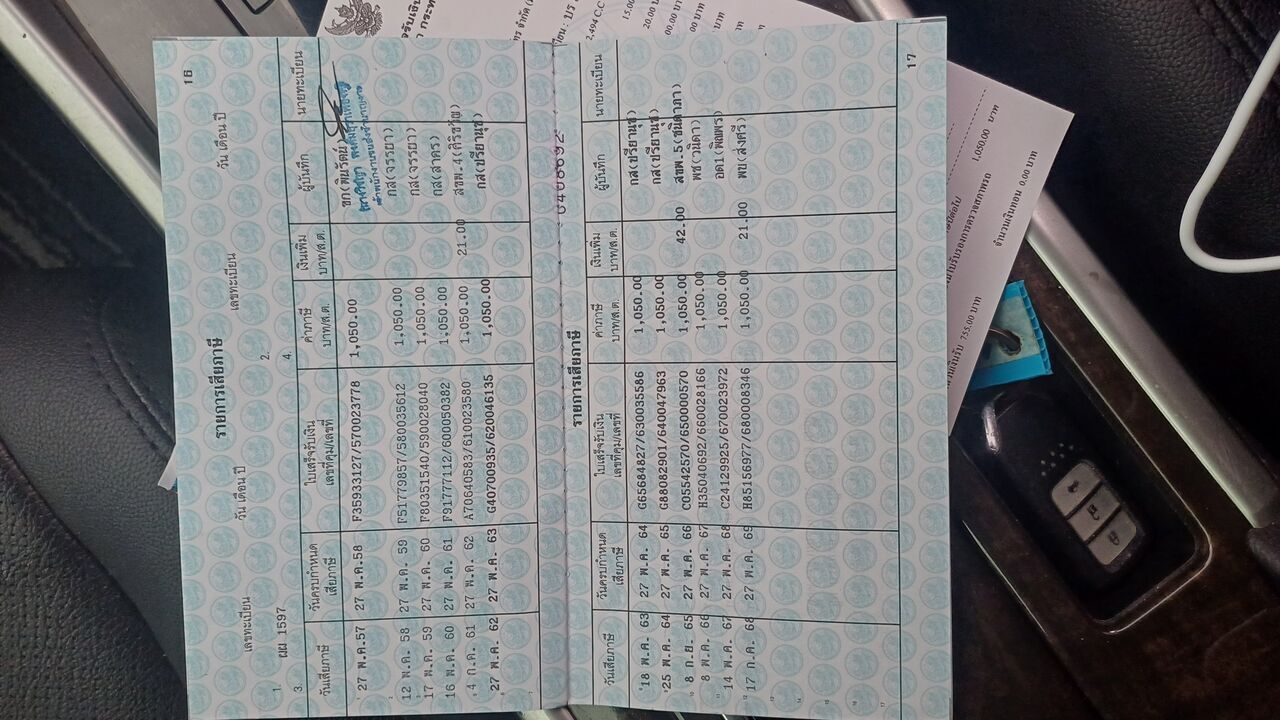 16
รายการเสียภาษี
เลขทะเบียน วัน เดือน ปี เลขทะเบียน วัน เดือน ปี
1. ผผ 1597 2.
3. 4.
วันเสียภาษี วันครบกำหนดเสียภาษี ใบเสร็จรับเงิน เลขที่คุม/เลขที่ ค่าภาษี บาท/ส.ต. เงินเพิ่ม บาท/ส.ต. ผู้บันทึก นายทะเบียน
27 พ.ค.57 27 พ.ค.58 F35933127/570023778 1,050.00
12 พ.ค. 58 27 พ.ค. 59 F51779857/580035612 1,050.00 กส(จรรยา)
17 พ.ค. 59 27 พ.ค. 60 F80351540/590028040 1,050.00 กส(จรรยา)
16 พ.ค. 60 27 พ.ค. 61 F91777112/600050382 1,050.00 กส(สาคร)
4 ก.ค. 61 27 พ.ค. 62 A70640583/610023580 1,050.00 21.00 สขพ.4(ศิริขวัญ)
27 พ.ค. 62 27 พ.ค. 63 G40700935/620046135 1,050.00 กส(ปรียานุช)
รายการเสียภาษี
วันเสียภาษี วันครบกำหนดเสียภาษี ใบเสร็จรับเงิน เลขที่คุม/เลขที่ ค่าภาษี บาท/ส.ต. เงินเพิ่ม บาท/ส.ต. ผู้บันทึก นายทะเบียน
18 พ.ค. 63 27 พ.ค. 64 G65684827/630035586 1,050.00 กส(ปรียานุช)
25 พ.ค. 64 27 พ.ค. 65 G88082901/640047963 1,050.00 กส(ปรียานุช)
8 ก.ย. 65 27 พ.ค. 66 C05542570/650000570 1,050.00 42.00 สขพ.5(ชนิดาภา)
8 พ.ค. 66 27 พ.ค. 67 H35040692/660028166 1,050.00 พช(วนิดา)
14 พ.ค. 67 27 พ.ค. 68 C24129925/670023972 1,050.00 อด1(พิณพร)
17 ก.ค. 68 27 พ.ค. 69 H85156977/680008346 1,050.00 21.00 พบ(ส่งศรี)
17
2,494 CC
15.00
20.00 บาท
1,050.00 บาท
จำนวนเงินทอน 0.00 บาท
755.00 บาท